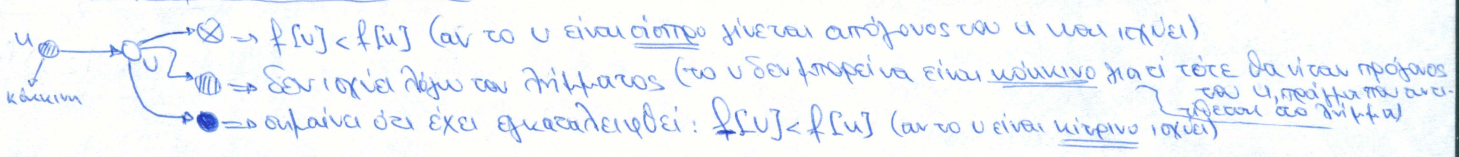 u υ ⇒ f[υ] < f[u] (αν το υ είναι άσπρο γίνεται απόγονος του u και ισχύει)
⇒ δεν ισχύει λόγω του λήμματος (το υ δεν μπορεί να είναι κόκκινο γιατί τότε θα ήταν πρόγονος
του u, πράγμα που αντι-
τίθεται στο λήμμα)
κόκκινη
⇒ σημαίνει ότι έχει εγκαταλειφθεί: f[υ] < f[u] (αν το υ είναι κίτρινο ισχύει)